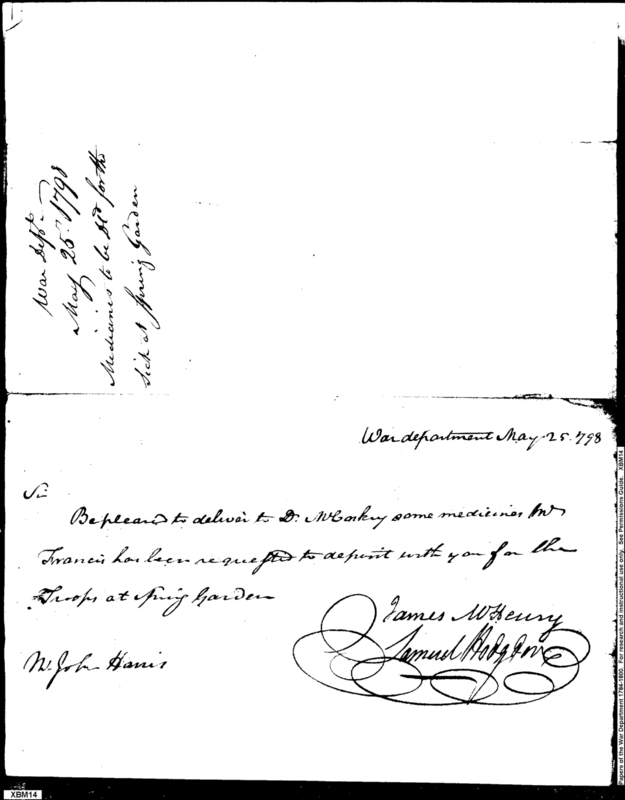 War Dept
May 25. 1798
Medicines to be dld for the
sick at Spring Garden
War department May 25. 798
Sir
Be pleased to deliver to Dr. McCoskry some medicines Mr
Francis has been requested to deposit with you for the
Troops at Spring Garden
James McHenry
Samuel Hodgdon
Mr. John Harris
Papers of the War Department 1784-1800. For research and instructional use only. See Permissions Guide. XBM14
XBM14